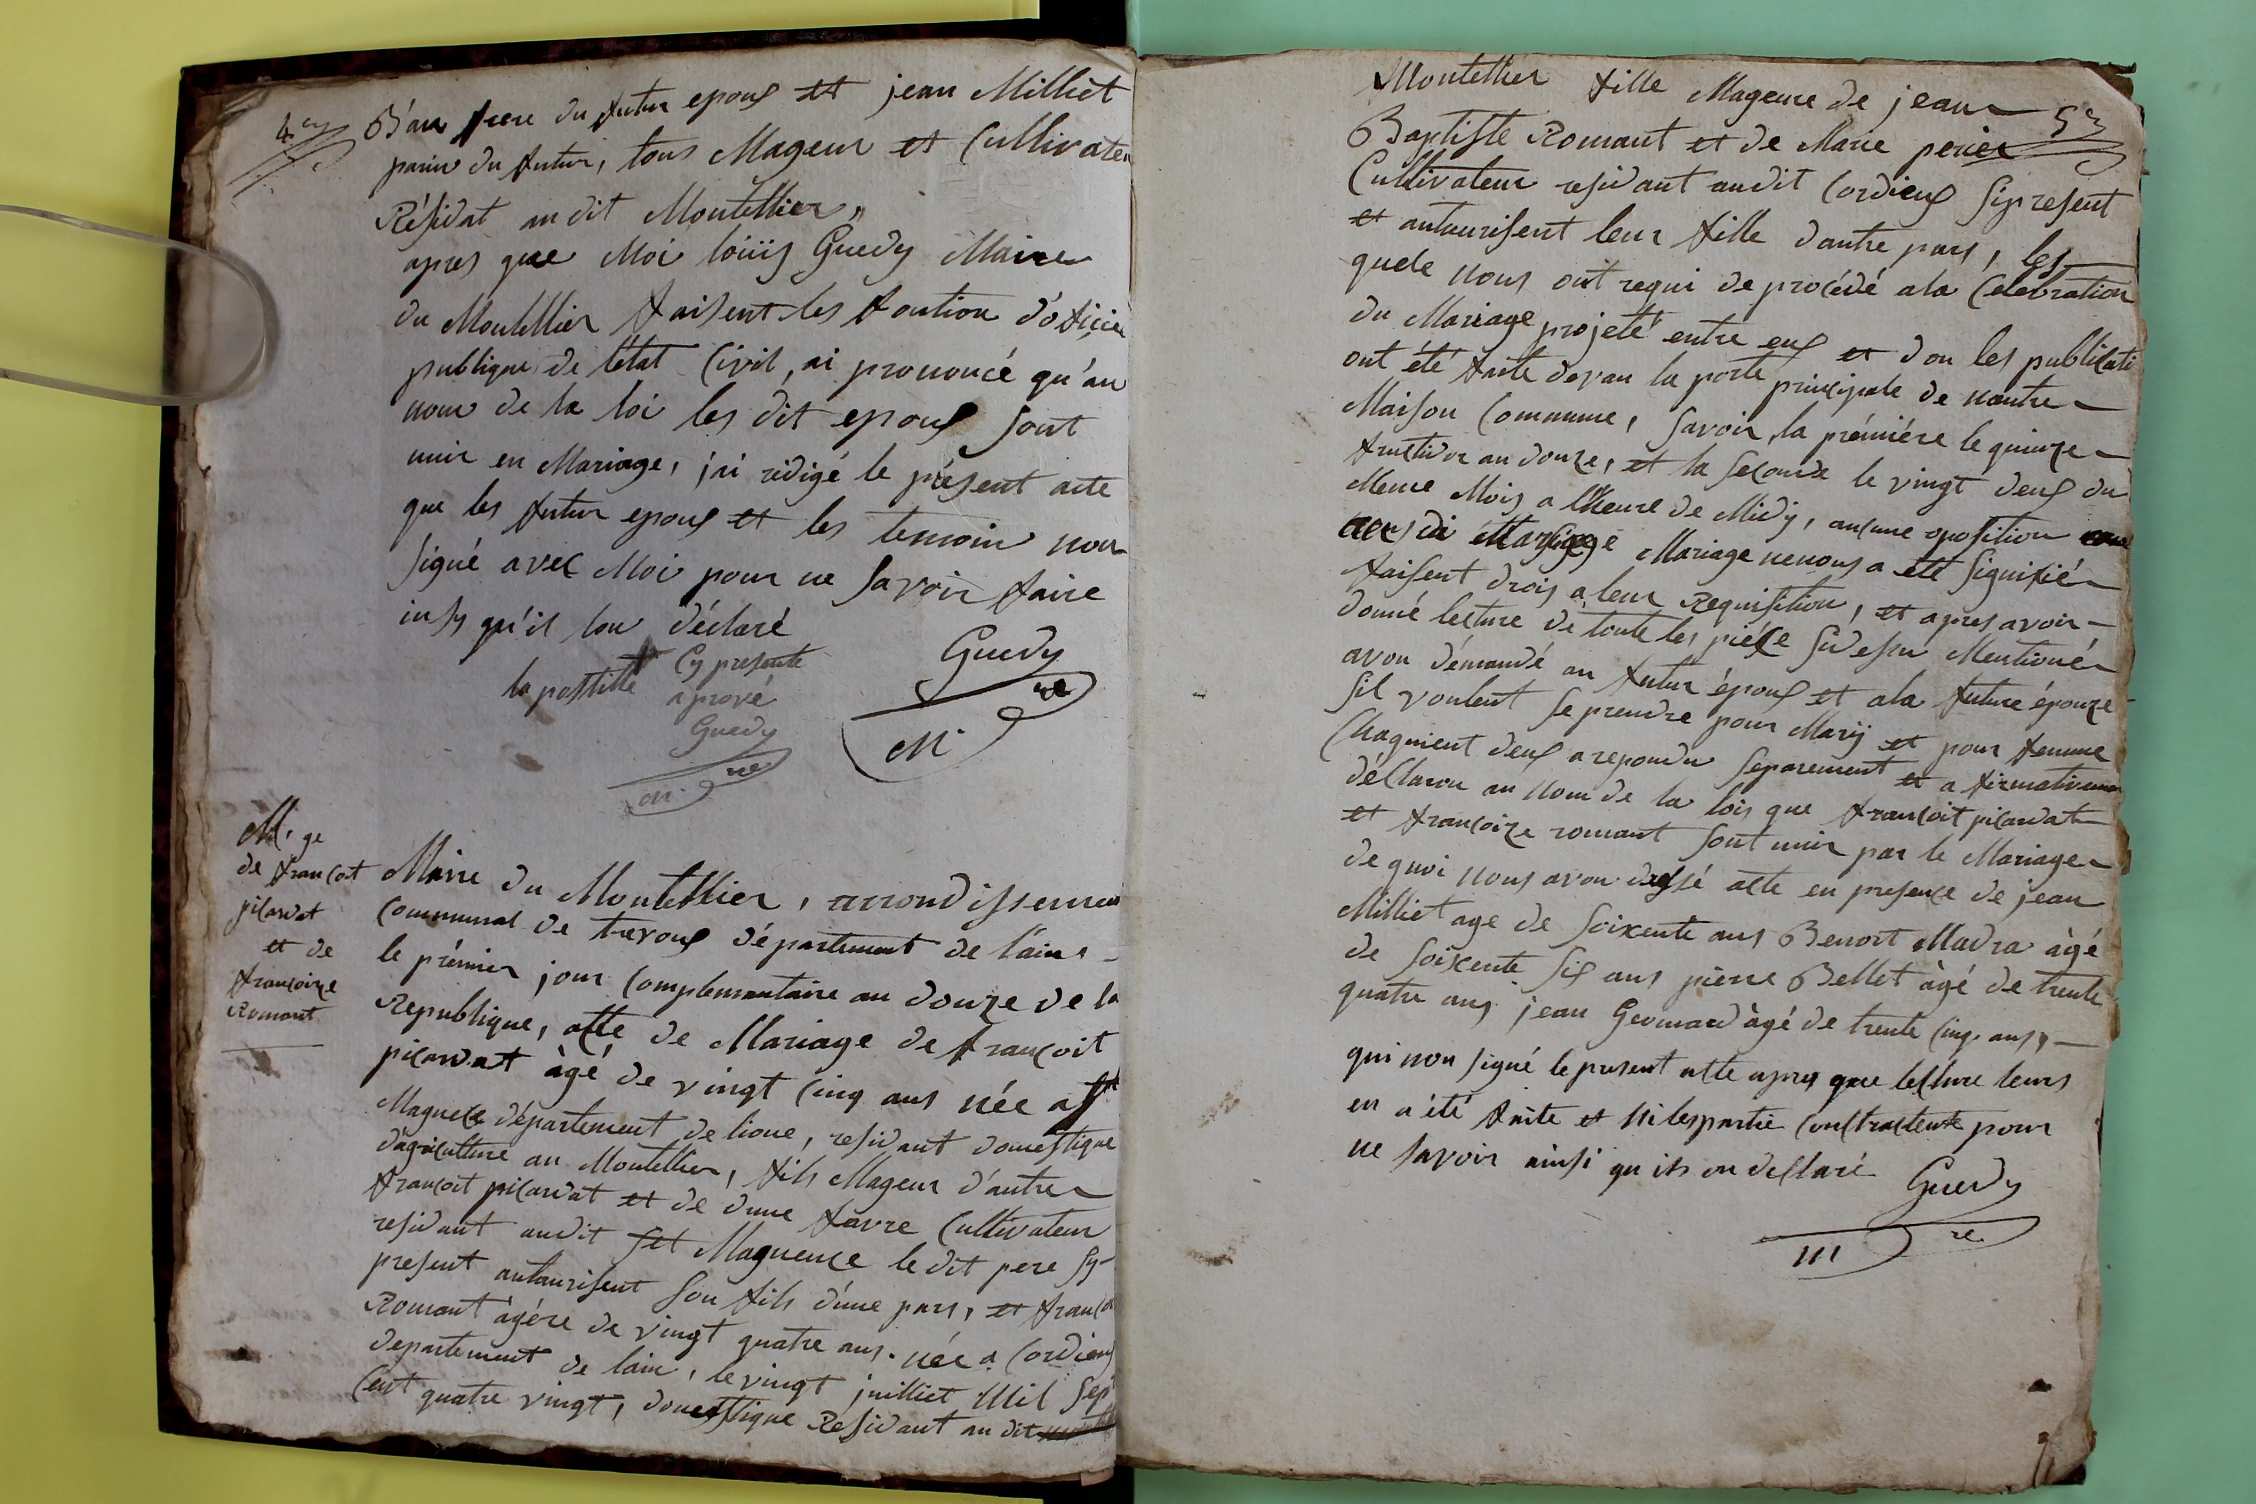 4ey
B'au frere du futur epoux et jean Milliet
parin du futur, tous Mageur et Cultivateu
Résidat au dit Montellier,,
apres que Moi loüis Guedy Maire
du Montellier faisent les fontion d'oficie
publique de l'état Civil, ai prononcé qu'au
nom de la loi les dit epoux sont
unir en Mariage, j'ai ridigé le présent acte
que les futur epoux et les temoin non
signé avec Moi pour ne savoir faire
insy qu'il lon déclaré
la postille Cy presente
aprové
Guedy
M. re
Guedy
M. re
M. ge
de francoit
picardat
et de
francoize
Romant
Mairie du Montellier, arrondissemen
Communal de trevoux département de l'ain -
le prémier jour Complementaire an douze de la
Republique, atte de Mariage de francoit
picardat àgé de vingt Cinq ans née a st
Maguele département de lione, residant domestique
d'agriculture au Montellier, fils Mageur d'autre
francoit picardat et de dune favre Cultivateur
residant audit set Maguence le dit pere sy-
present autaurisent son fils d'une pars, et franco
Romant àgére de vingt quatre ans. née a Cordieux
departement de lain, le vingt juilliet Mil sept
Cent quatre vingt, domestique Résidant au dit
53
Montellier fille Mageure de jean
Baptiste Romant et de Marie perier
Cultivateur residant audit Cordieux sy present
et autaurisent leur fille d'autre pars, les
quele nous ont requi de procédé a la Célébration
du Mariage projeté entre eux et don les publicati
ont été faite devan la porte principale de nautre
Maison Commune, savoir, la prémiére le quinze
fructidor an douze, et la seconde le vingt deux du
Meme Mois a l'heure de Midy, aucune oposition
Mariage ne nous a été signifié
faisent drois a leur Requisition, et apres avoir
donné lecture de toute les piéce sidessu Mentioné
avon démandé au futur époux et a la future épouze
sil voulent se prendre pour Mary et pour femme
Chaquient deux a repondu separement et a firmativemen
déclaron au nom de la lois que francoit picardat
et francoize romant sont unir par le Mariage
de quoi nous avon dressé atte en presence de jean
Milliet age de soixente ans Benoit Madra àgé
de soixente six ans piere Bellet àgé de trente
quatre ans jean Geomard àgé de trente Cinq ans,
qui non signé le present atte apres que lecture leurs
en a été faite et ni les partie Contractente pour
ne savoir ainsi qu ils on declaré
Guedy
M re